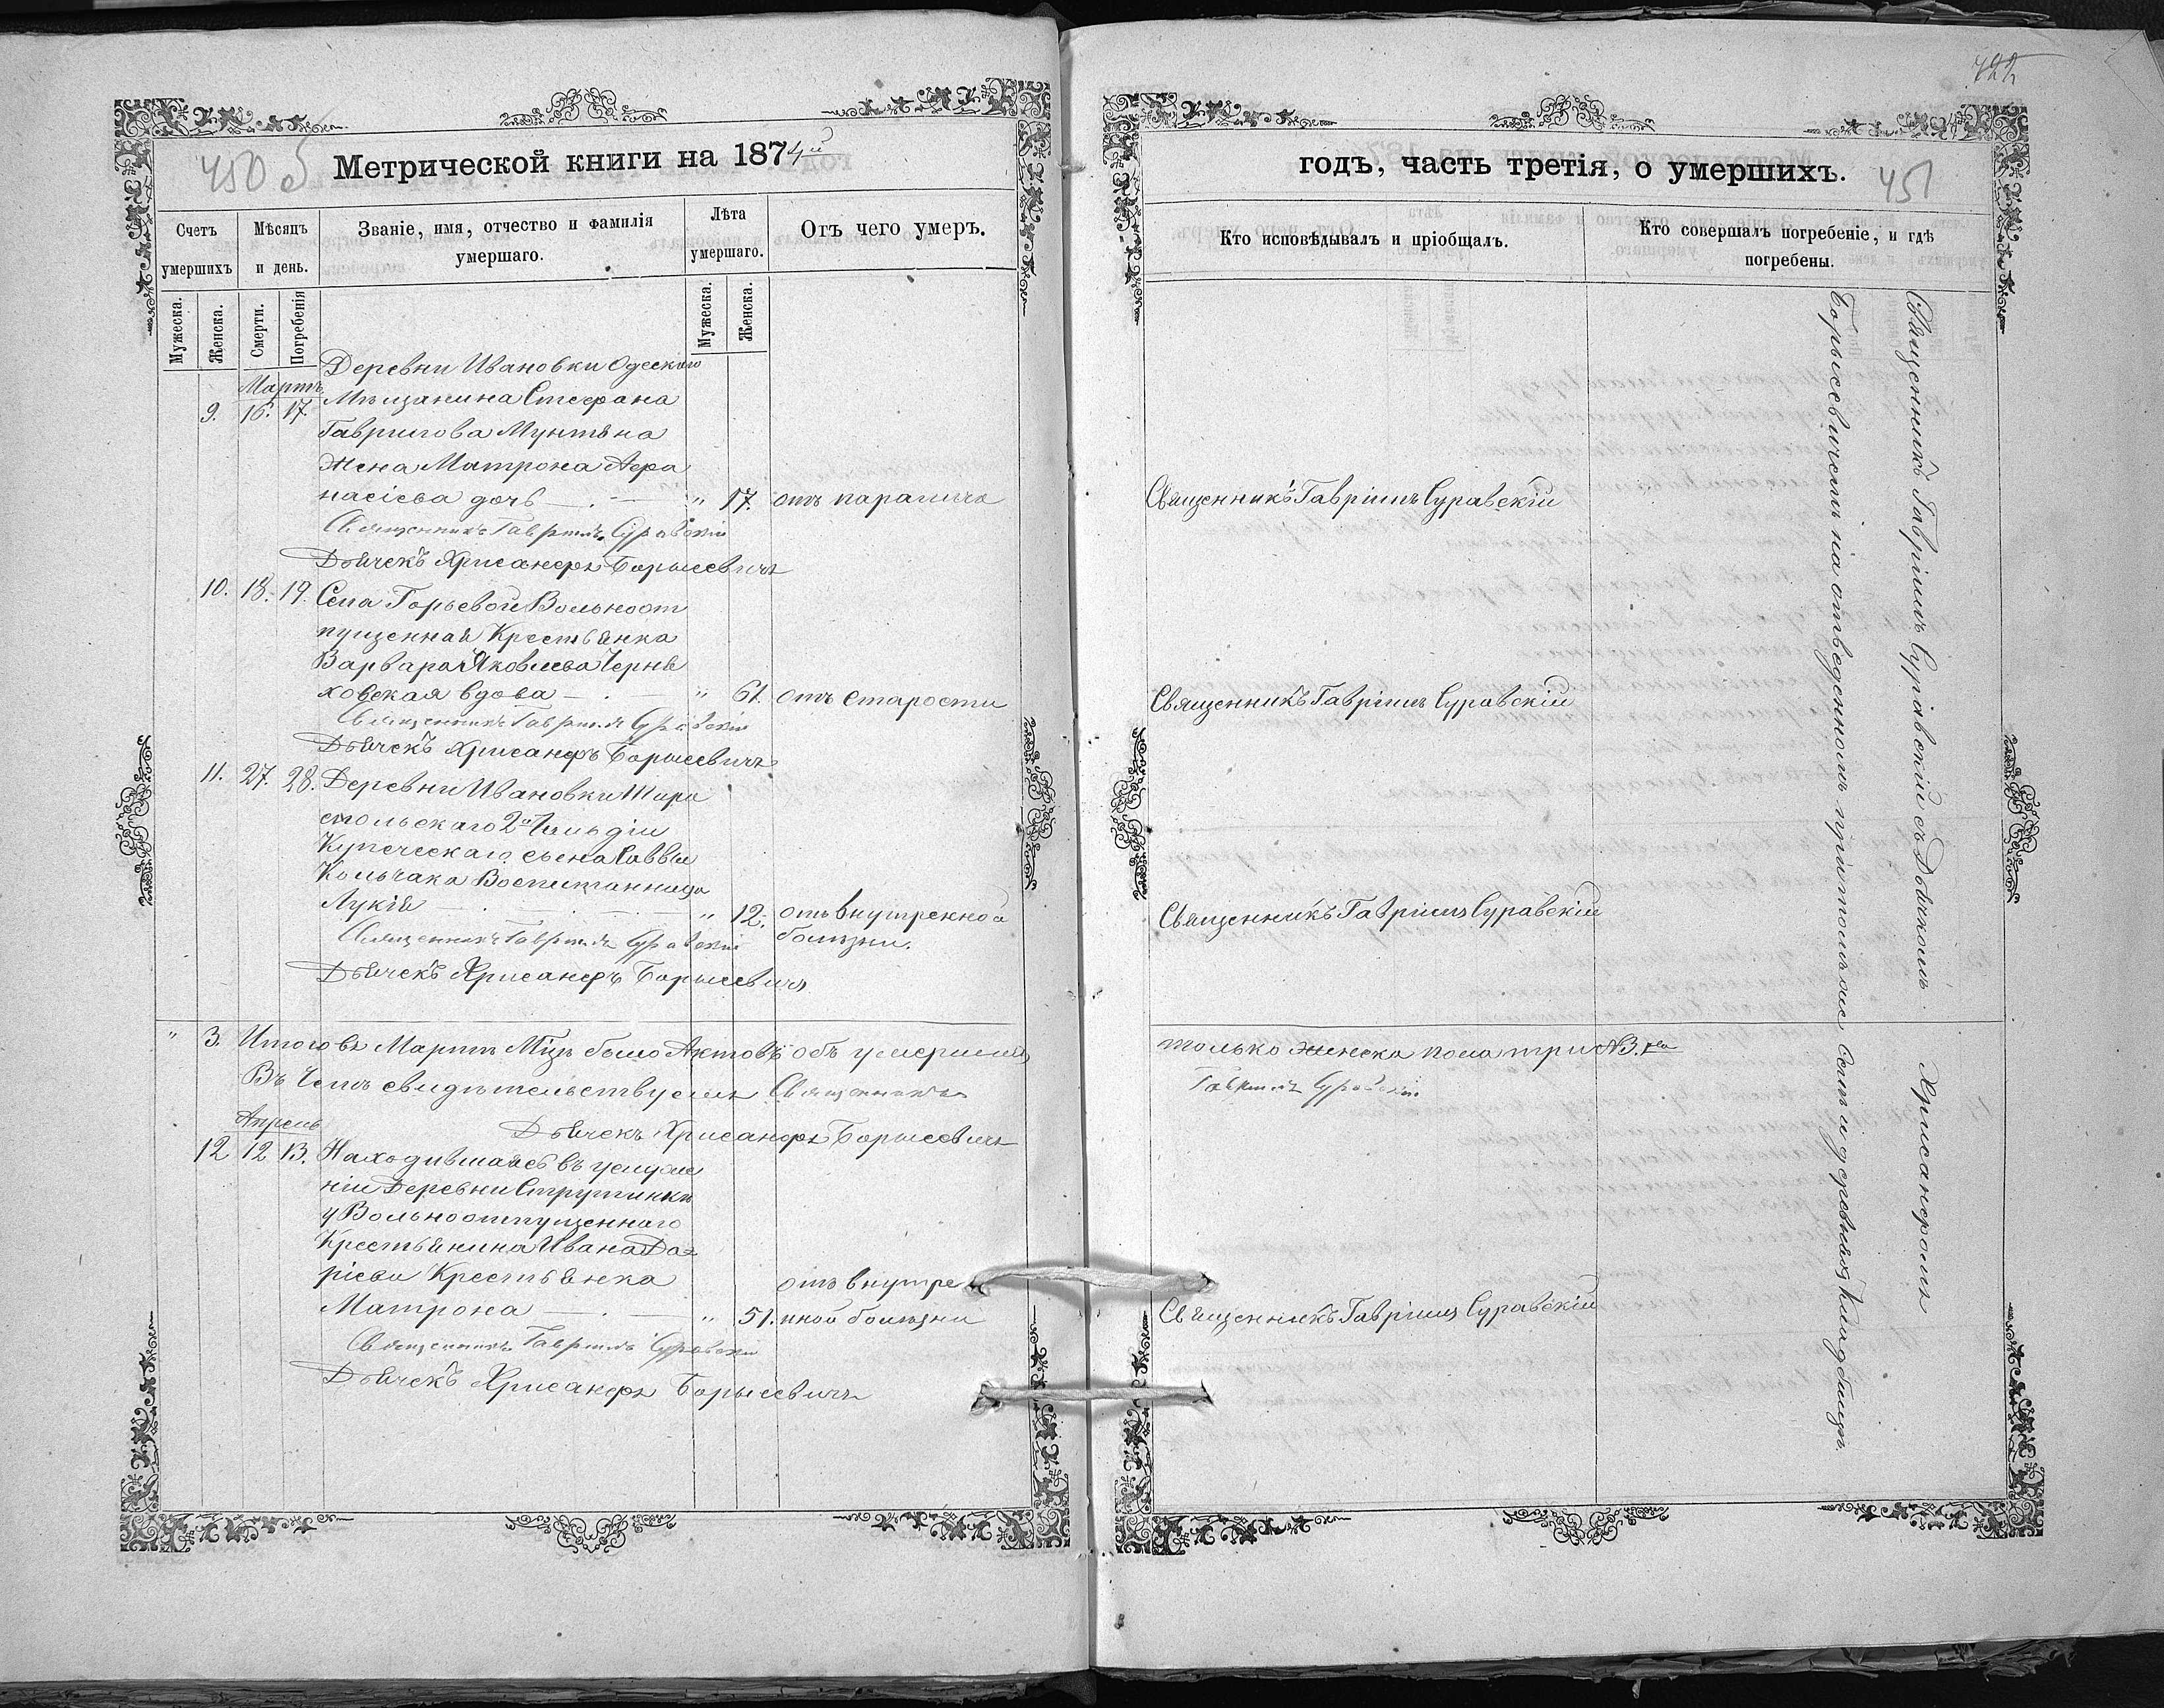 450 б
Метрической книги на 1874й
Счетъ умершихъ
Мѣсяцъ и день.
Званіе, имя, отчество и фамилія умершаго.
Лѣта умершаго.
Отъ чего умеръ.
Мужеска.
Женска.
Смерти.
Погребенія
Мужеска.
Женска.
Деревни Ивановки Одескаго
Мартъ
9. 16. 17. Мѣщанина Стефана
Гаврилова Мунтяна
Жена Матрона Афа
насіева дочь — . — „ 17. отъ паралича
Священникъ Гавріилъ Суравскій
Дьячекъ Хрисанфъ Борысевичъ
10. 18. 19. Села Горьевой Вольноот
пущенная Крестьянка
Варвара Яковлева Черня
ховская вдова — . — „ 61. отъ старости
Священникъ Гавріилъ Суравскій
Дьячекъ Хрисанфъ Борысевичъ
11. 27. 28. Деревни Ивановки Тира
спольскаго 2й Гильдіи
Купеческаго сына Саввы
Кольчака Воспитанница
Лукія „ 12. отъ внутренной
болѣзни.
Священникъ Гавріилъ Суравскій
Дьячекъ Хрисанфъ Борысевичъ
„ 3. Итого въ Мартѣ Мцѣ было Актовъ объ умершихъ
Въ чемъ свидѣтельствуемъ Священникъ
Дьячекъ Хрисанфъ Борысевичъ
Апрель
12 12 13. Находившаяся въ услуже
ніи Деревни Струтинки
у Вольноотпущеннаго
Крестьянина Ивана Да=
ріева Крестьянка
отъ внутре
Матрона — . — „ 51. нной болѣзни
Священникъ Гавріилъ Суравскій
Дьячекъ Хрисанфъ Борысевичъ
422
годъ, часть третія, о умершихъ.
451
Кто исповѣдывалъ и пріобщалъ.
Кто совершалъ погребеніе, и гдѣ погребены.
Священникъ Гавріилъ Суравскій
Священникъ Гавріилъ Суравскій
Священникъ Гавріилъ Суравскій
только женска пола три №3.
Гавріилъ Суравскій
Священникъ Гавріилъ Суравскій
Священникъ Гавріилъ Суравскій съ Дьячкомъ Хрисанфомъ
Борысевичемъ на отведенномъ при томъ же селѣ и деревняхъ Кладбищѣ.